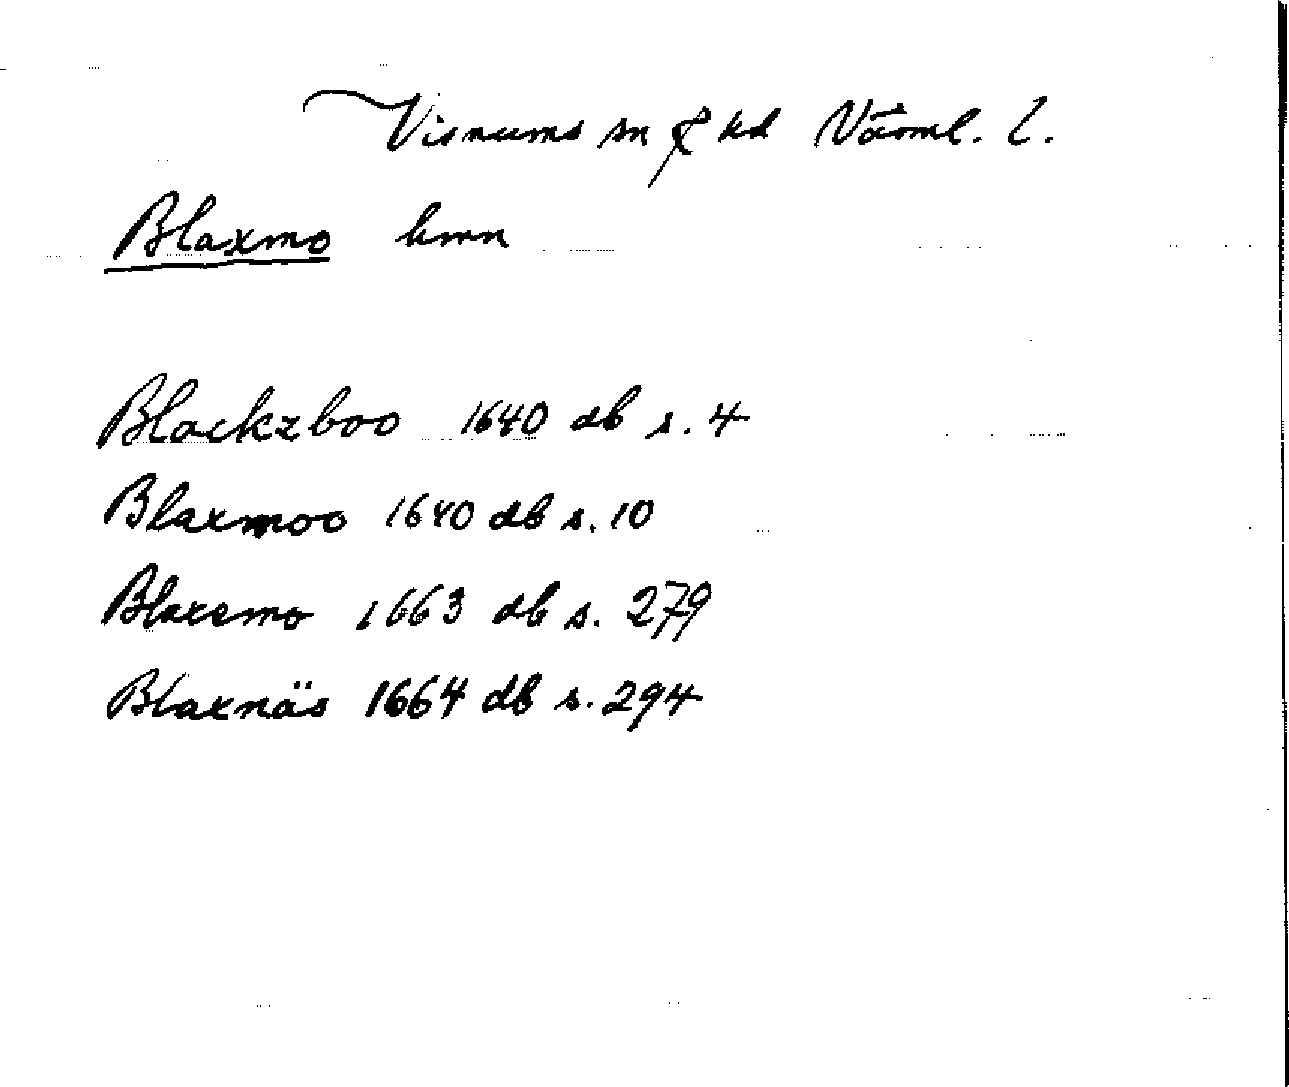 Visnums sn & hd Värml. l.
Blaxmo hmn
Blackzboo 1640 db s. 4
Blaxmoo 1640 db s. 10
Blaxemo 1663 db s. 279
Blaxnäs 1664 db s. 294